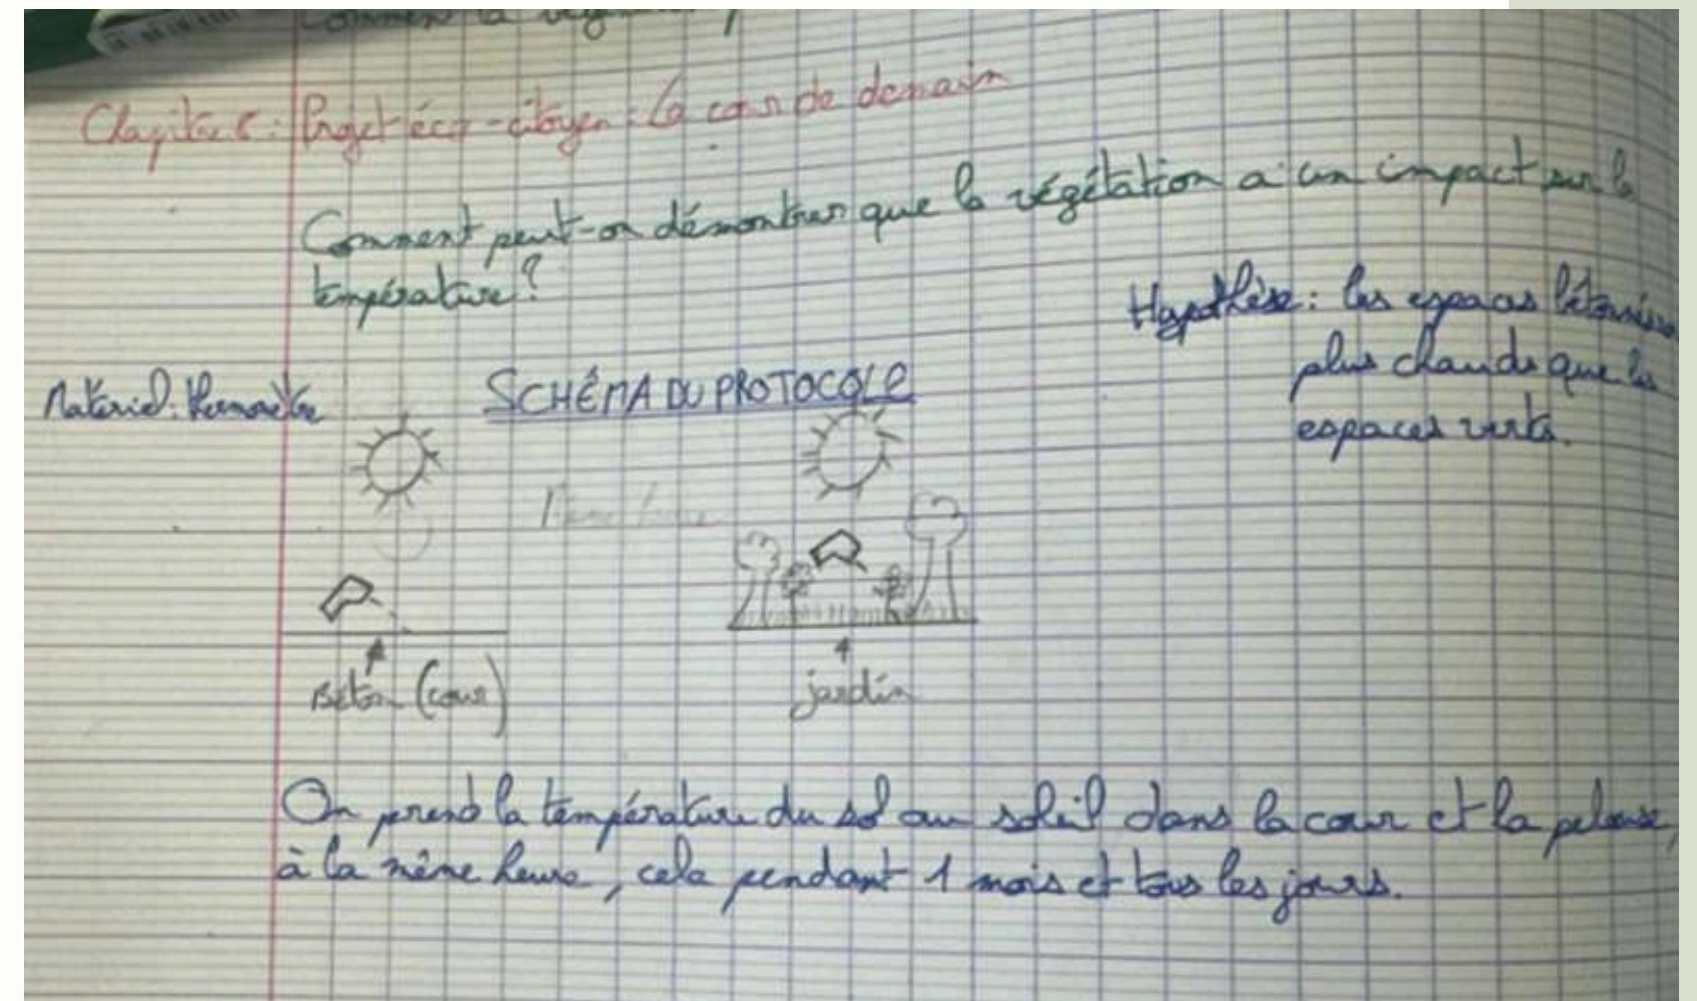 Comment la
Chapitre 5 : Projet éco-citoyen : La cour de demain
Comment peut-on démontrer que la végétation a un impact sur la
température ?
Hypothèse : les espaces bétonnés
plus chauds que les
espaces verts.
Matériel : thermomètre
SCHÉMA DU PROTOCOLE
Même heure
Béton (cour)
jardin
On prend la température du sol au soleil dans la cour et la pelouse,
à la même heure, cela pendant 1 mois et tous les jours.